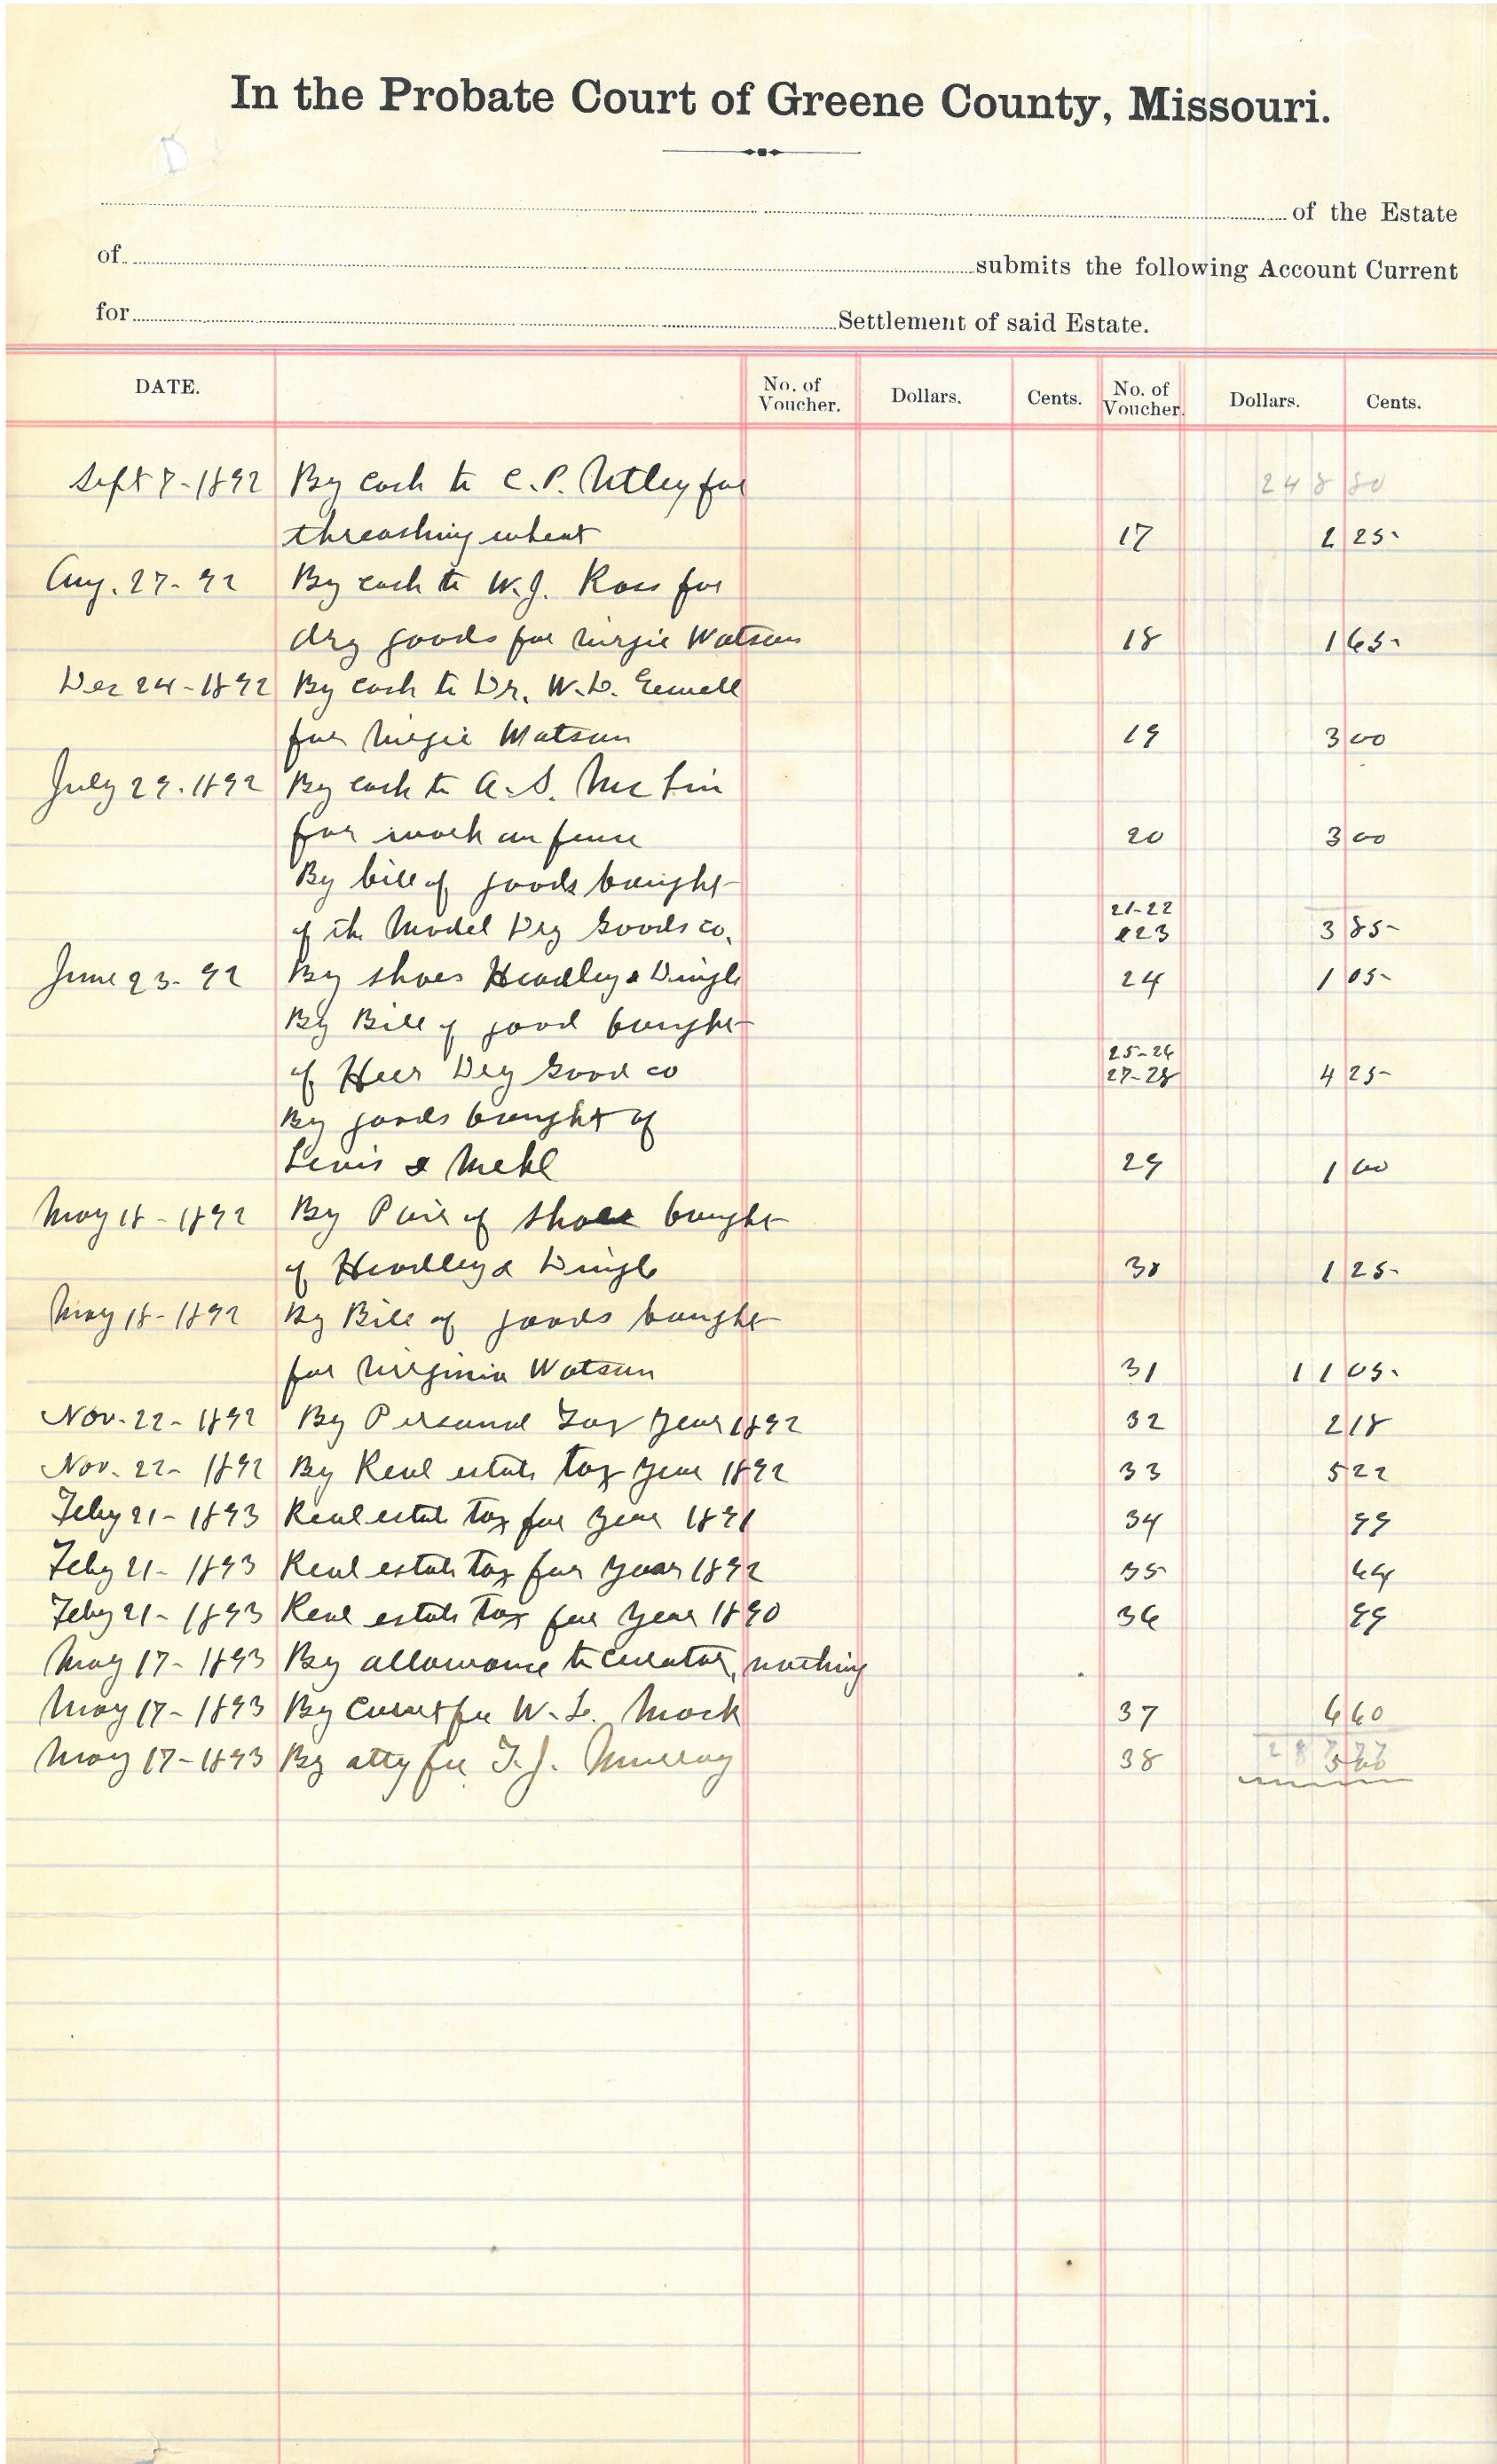 In the Probate Court of Greene County, Missouri.
of the Estate
of submits the following Account Current
for Settlement of said Estate.
DATE. No. of Voucher. Dollars. Cents. No. of Voucher. Dollars. Cents.
Sept 7-1892 By cash to C.P. Utley for 248 80
threashing wheat 17 2 25
Aug. 27-92 By cash to W.J. Ross for
dry goods for Virgie Watson 18 1 65
Dec 24-1892 By cash to Dr. W.D.
for Virgie Watson 19 3 00
July 29.1892 By cash to A.S. McLin
for work on fence 20 3 00
By bill of goods bought
of the Model Dry Goods co. 21-22 &23 3 85
June 23-92 By shoes Headley & Dingle 24 1 05
By Bill of good bought
of Heer Dry Good co 25-26 27-28 4 25
By goods bought of
Lewis & Mehl 29 1 00
May 18-1892 By Pair of shoes bought
of Headley & Dingle 30 1 25
May 18-1892 By Bill of goods bought
for Virginia Watson 31 11 05
Nov. 22-1892 By Personal Tax year 1892 32 2 18
Nov. 22-1892 By Real estate tax year 1892 33 5 22
Feby 21-1893 Real estate tax for year 1891 34 99
Feby 21-1893 Real estate tax for year 1892 35 64
Feby 21-1893 Real estate tax for year 1890 36 99
May 17-1893 By allowance to Curator, nothing
May 17-1893 By Court fee W.L. Mack 37 6 60
May 17-1893 By atty fee T.J. Murray 38 5 00